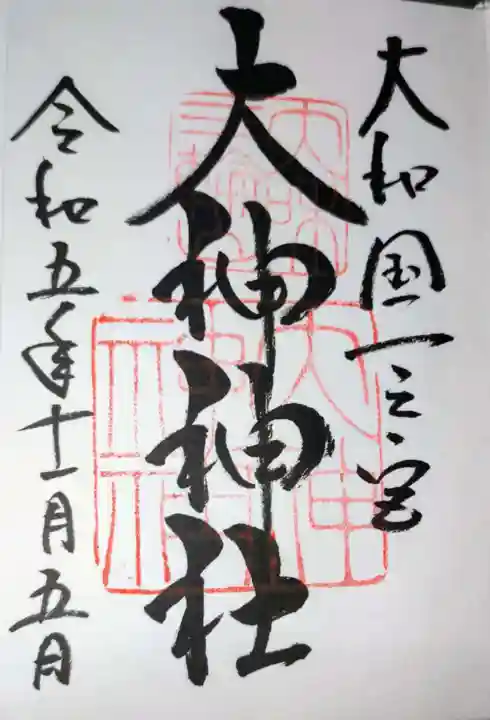 大和国一之宮
大神神社
令和五年十一月五日